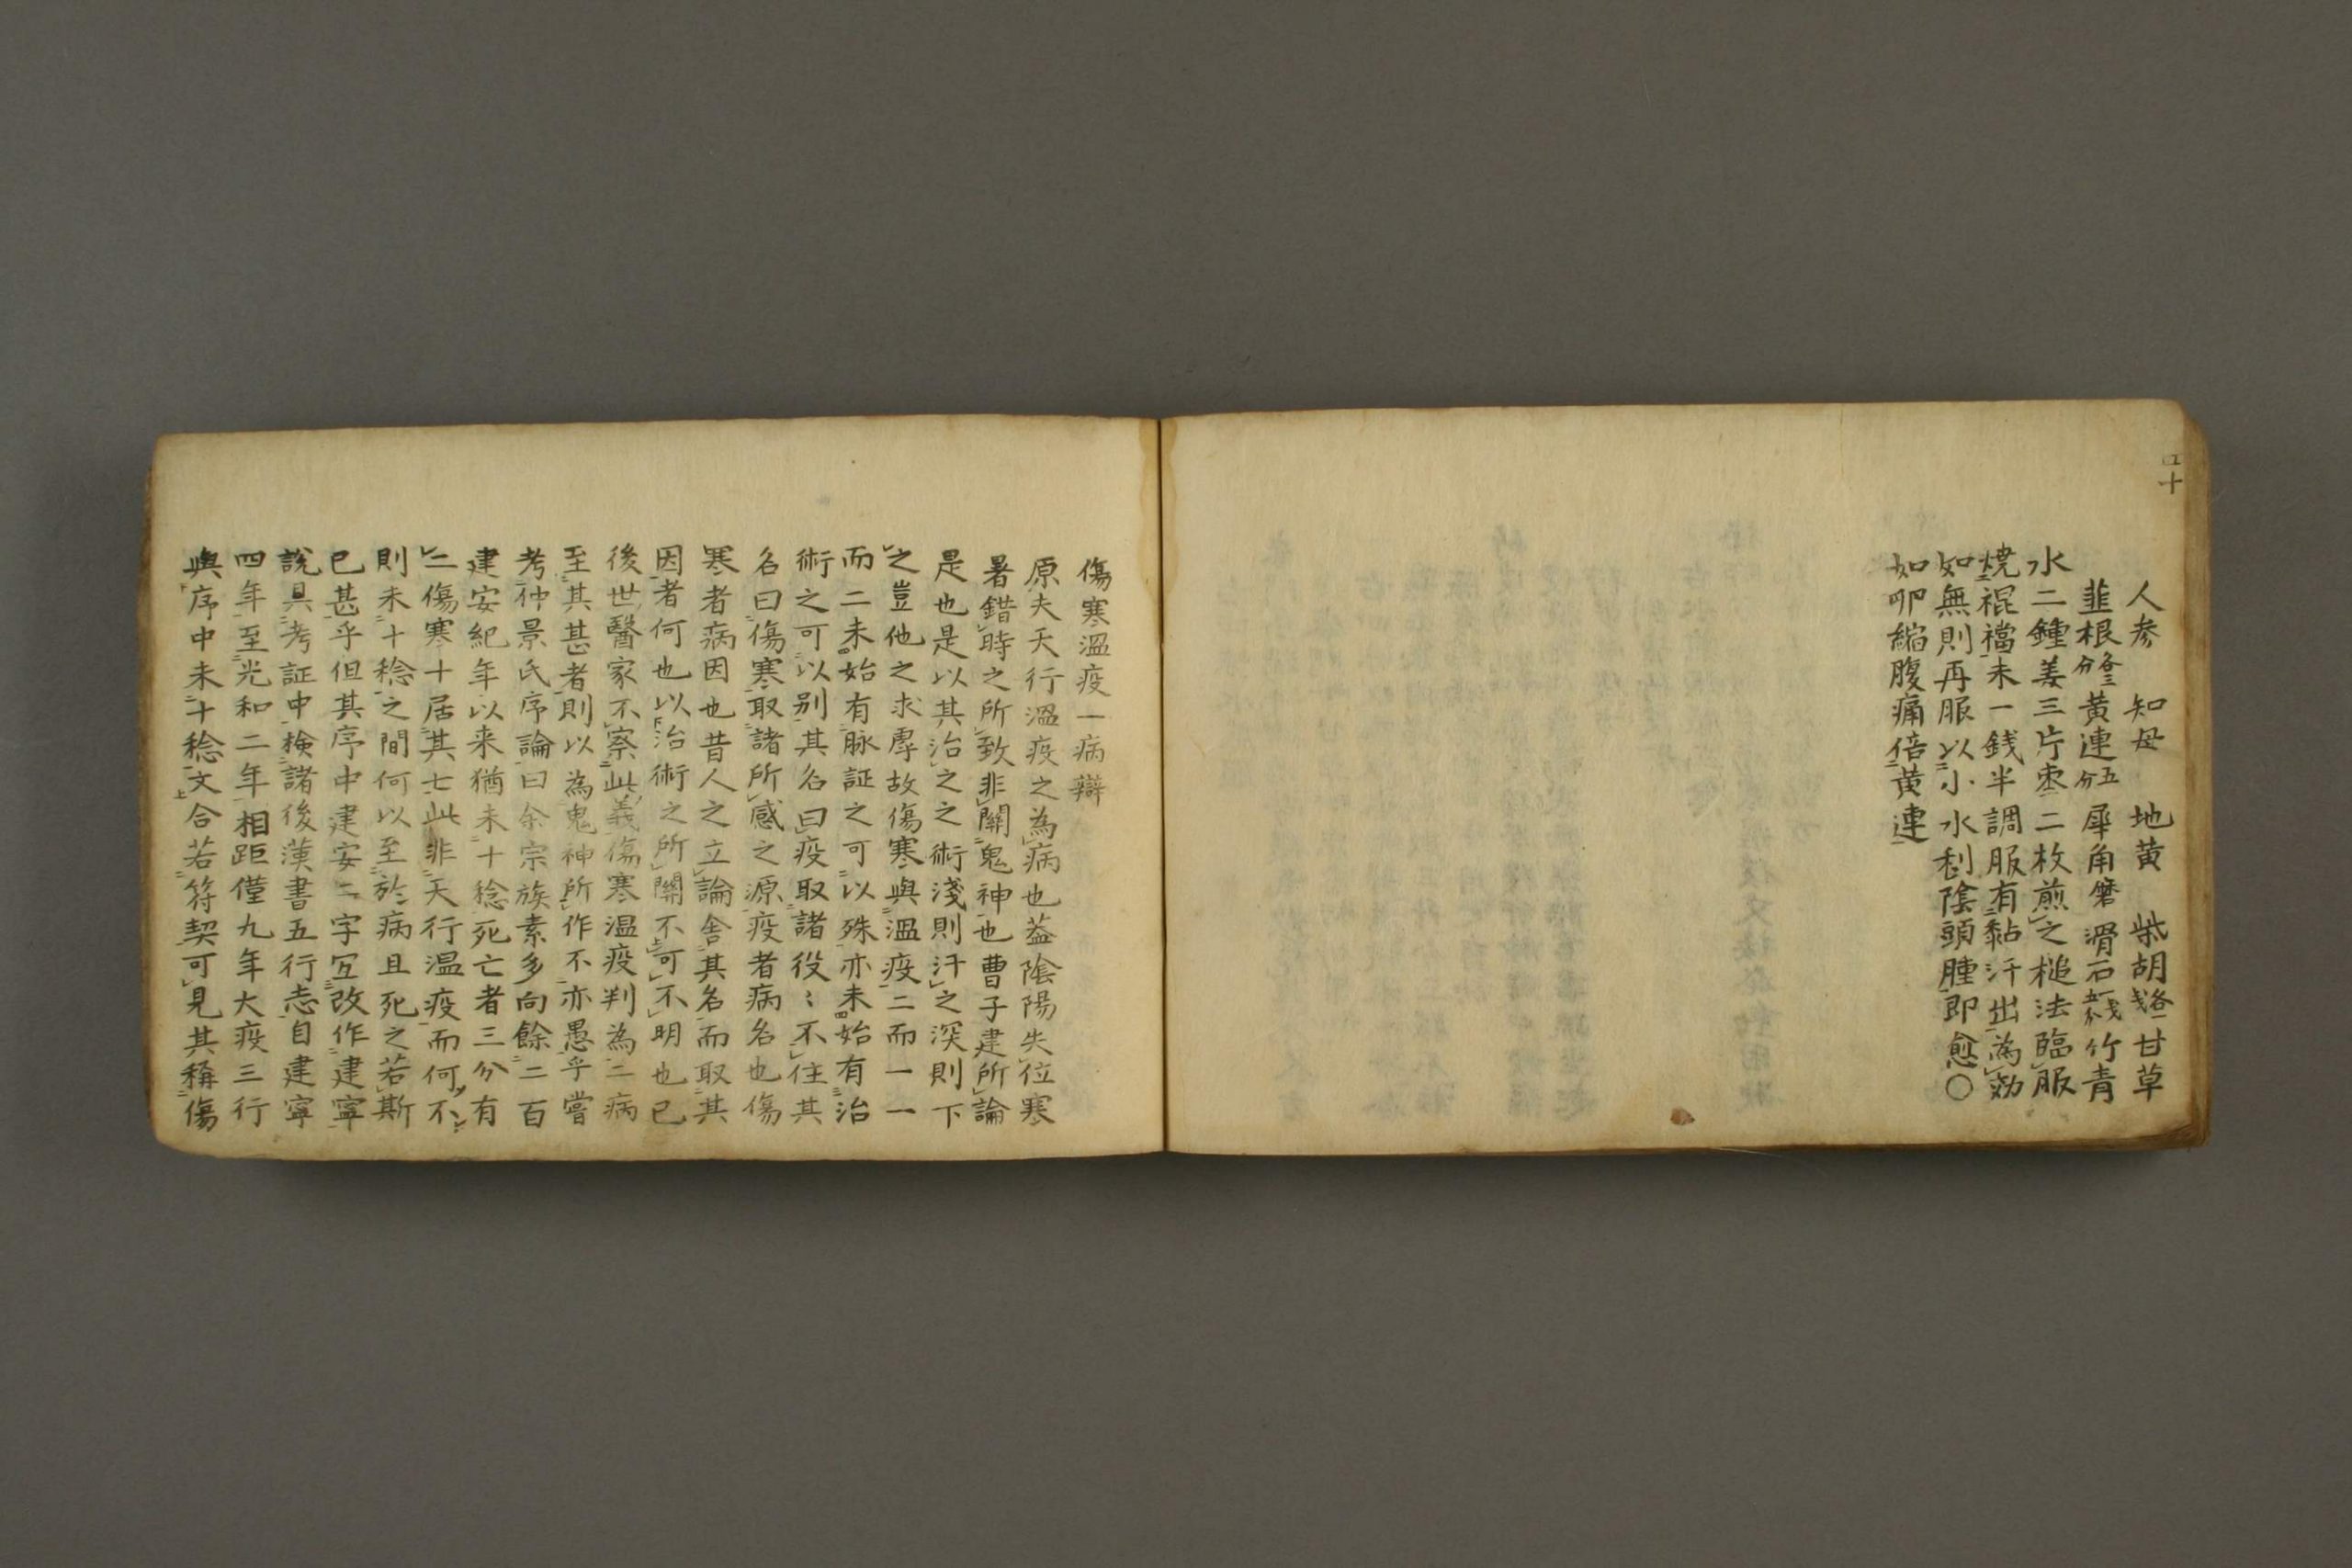 四十
人參　知母　地黄　柴胡各一戔甘草
韭根各三分黄連五分犀角磨滑石一戔五分竹青
水二鍾姜三片枣二枚煎之槌法臨服
焼裩襠末一銭半調服有黏汗出為効
如無則再服以小水利陰頭腫即愈〇
如卵縮腹痛倍黄連
傷寒溫疫一病辯
原夫天行溫疫之為病也蓋陰陽失位寒
暑錯時之所致非關鬼神也曹子建所論
是也是以其治之之術淺則汗之深則下
之豈他之求虖故傷寒與溫疫二而一一
而二未始有脉証之可以殊亦未始有治
術之可以别其名曰疫取諸役〻不住其
名曰傷寒取諸所感之源疫者病名也傷
寒者病因也昔人之立論舍其名而取其
因者何也以治術之所關不可不明也已
後世醫家不察此義傷寒温疫判為二病
至其甚者則以為鬼神所作不亦愚乎嘗
考仲景氏序論曰余宗族素多向餘二百
建安紀年以来猶未十稔死亡者三分有
二傷寒十居其七此非天行温疫而何不
則未十稔之間何以至於病且死之若斯
已甚乎但其序中建安二字宜改作建寧
說具考証中検諸後漢書五行志自建寧
四年至光和二年相距僅九年大疫三行
與序中未十稔文合若符契可見其稱傷